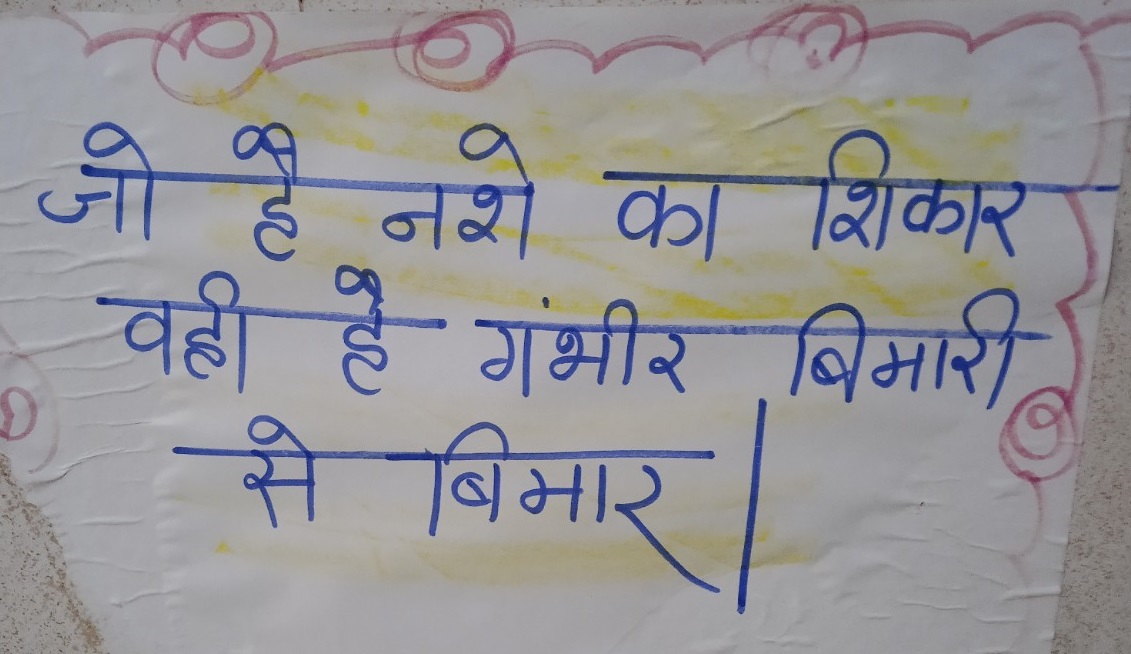 जो है नशे का शिकार
वही है गंभीर बिमारी
से बिमार|